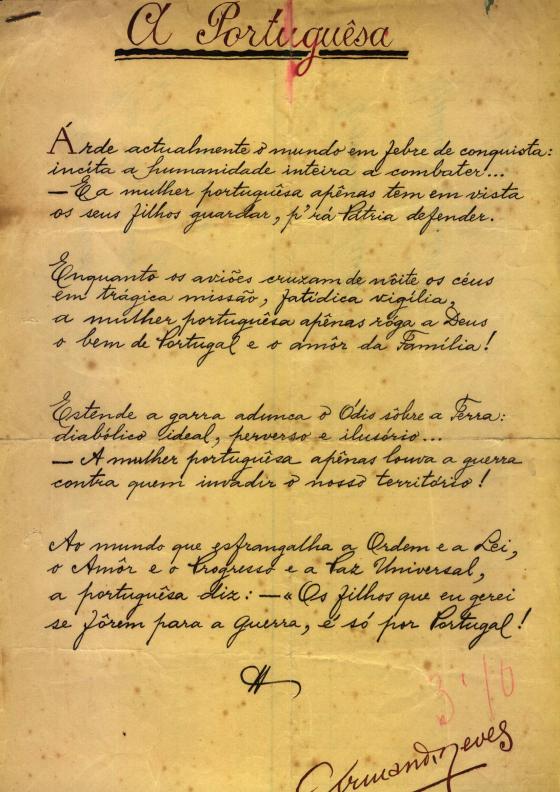 A Portuguêsa
Árde actualmente o mundo em febre de conquista:
incita a humanidade inteira a combater...
— E a mulher portuguêsa apênas tem em vista
os seus filhos guardar, p'rá Pátria defender.
Enquanto os aviões cruzam de nôite os céus
em trágica missão, fatídica vigília,
a mulher portuguêsa apênas róga a Deus
o bem de Portugal e o amôr da Família!
Estende a garra adunca o Ódio sôbre a Terra:
diabólico ideal, perverso e ilusório...
— A mulher portuguêsa apênas louva a guerra
contra quem invadir o nosso território!
Ao mundo que esfrangalha a Ordem e a Lei,
o Amôr e o Progresso e a Paz Universal,
a portuguêsa diz: — «Os filhos que eu gerei
se fôrem para a guerra, é só por Portugal!
3'10
Armando Neves